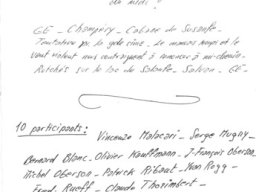 du midi ?
GE - Champéry - Cabane de Susanfe -
Tentative ps. le gde cime. Le mauvais temps et le
vent violent nous contraignent à renoncer à mi-chemin.
Retour sur le lac de Salanfe - Salvan - GE -
10 participants : Vincenzo Malacari - Serge Mugny -
Bernard Blanc - Olivier Kauffmann - J-François Oberson
Michel Oberson - Patrick Ribaut - Yvan Rogg -
Fernd. Rueff - Claude Thorimbert -